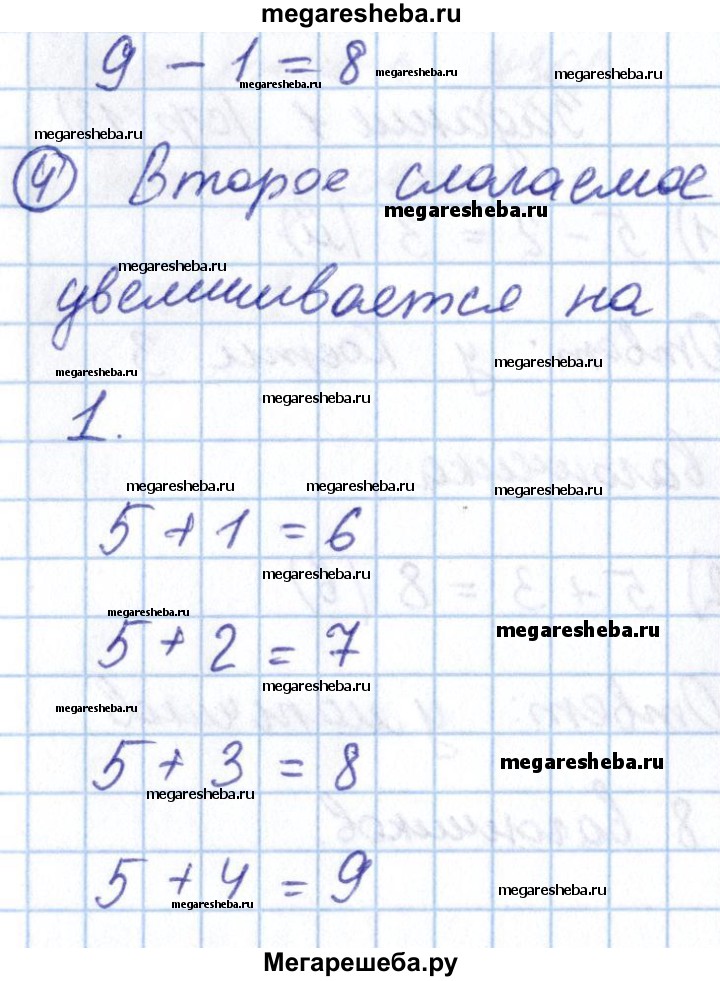 megaresheba.ru
9 - 1 = 8
megaresheba.ru
megaresheba.ru
megaresheba.ru
megaresheba.ru
4 Второе слагаемое
megaresheba.ru
megaresheba.ru
увеличивается на
megaresheba.ru
megaresheba.ru
megaresheba.ru
1.
megaresheba.ru
megaresheba.ru
megaresheba.ru
5 + 1 = 6
megaresheba.ru
megaresheba.ru
megaresheba.ru
5 + 2 = 7
megaresheba.ru
megaresheba.ru
5 + 3 = 8
megaresheba.ru
megaresheba.ru
5 + 4 = 9
megaresheba.ru
megaresheba.ru
Мегарешеба.ру